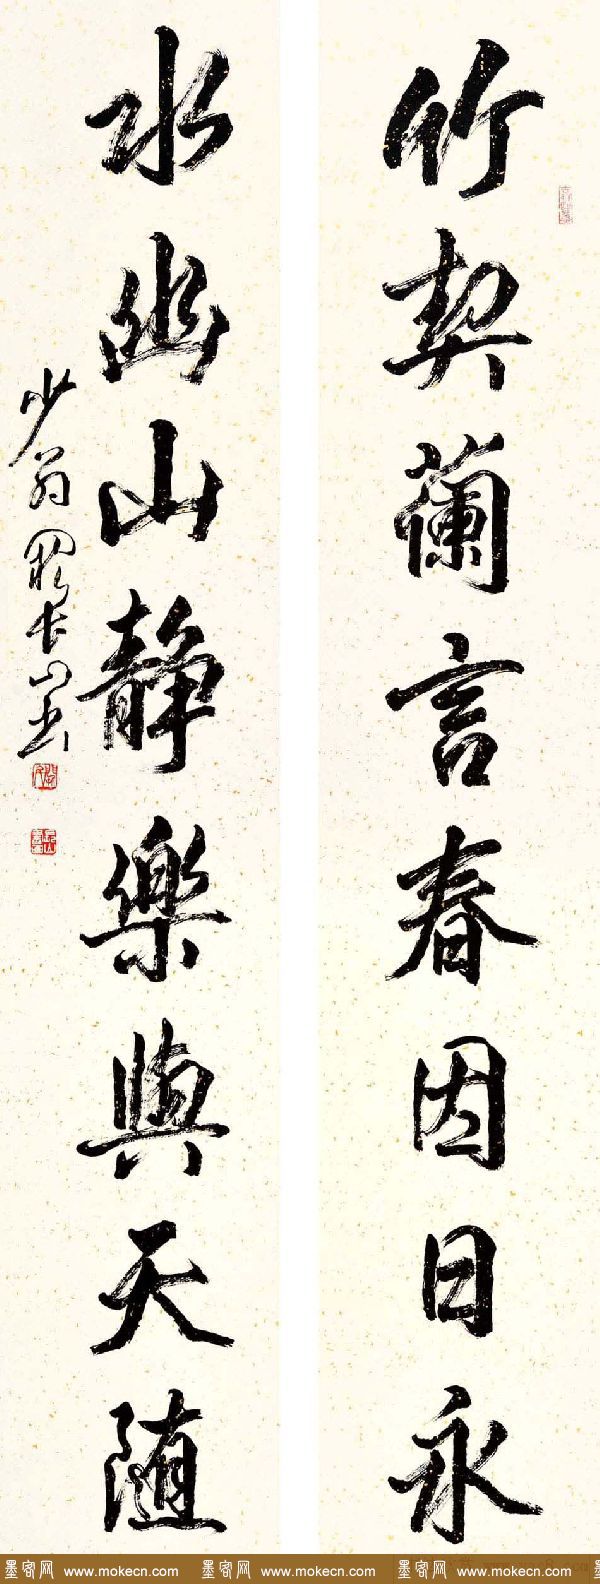 竹契蘭言春因日永
水幽山静樂與天随
少翁
墨客网 www.mokecn.com 墨客网 www.mokecn.com 墨客网 www.mokecn.com